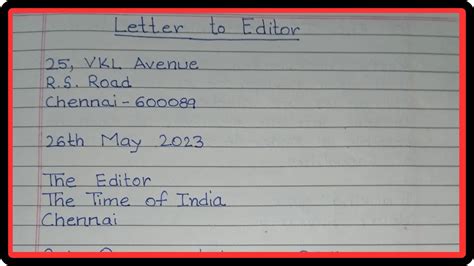 Letter to Editor
25, VKL Avenue
R.S. Road
Chennai - 600089
26th May 2023
The Editor
The Time of India
Chennai